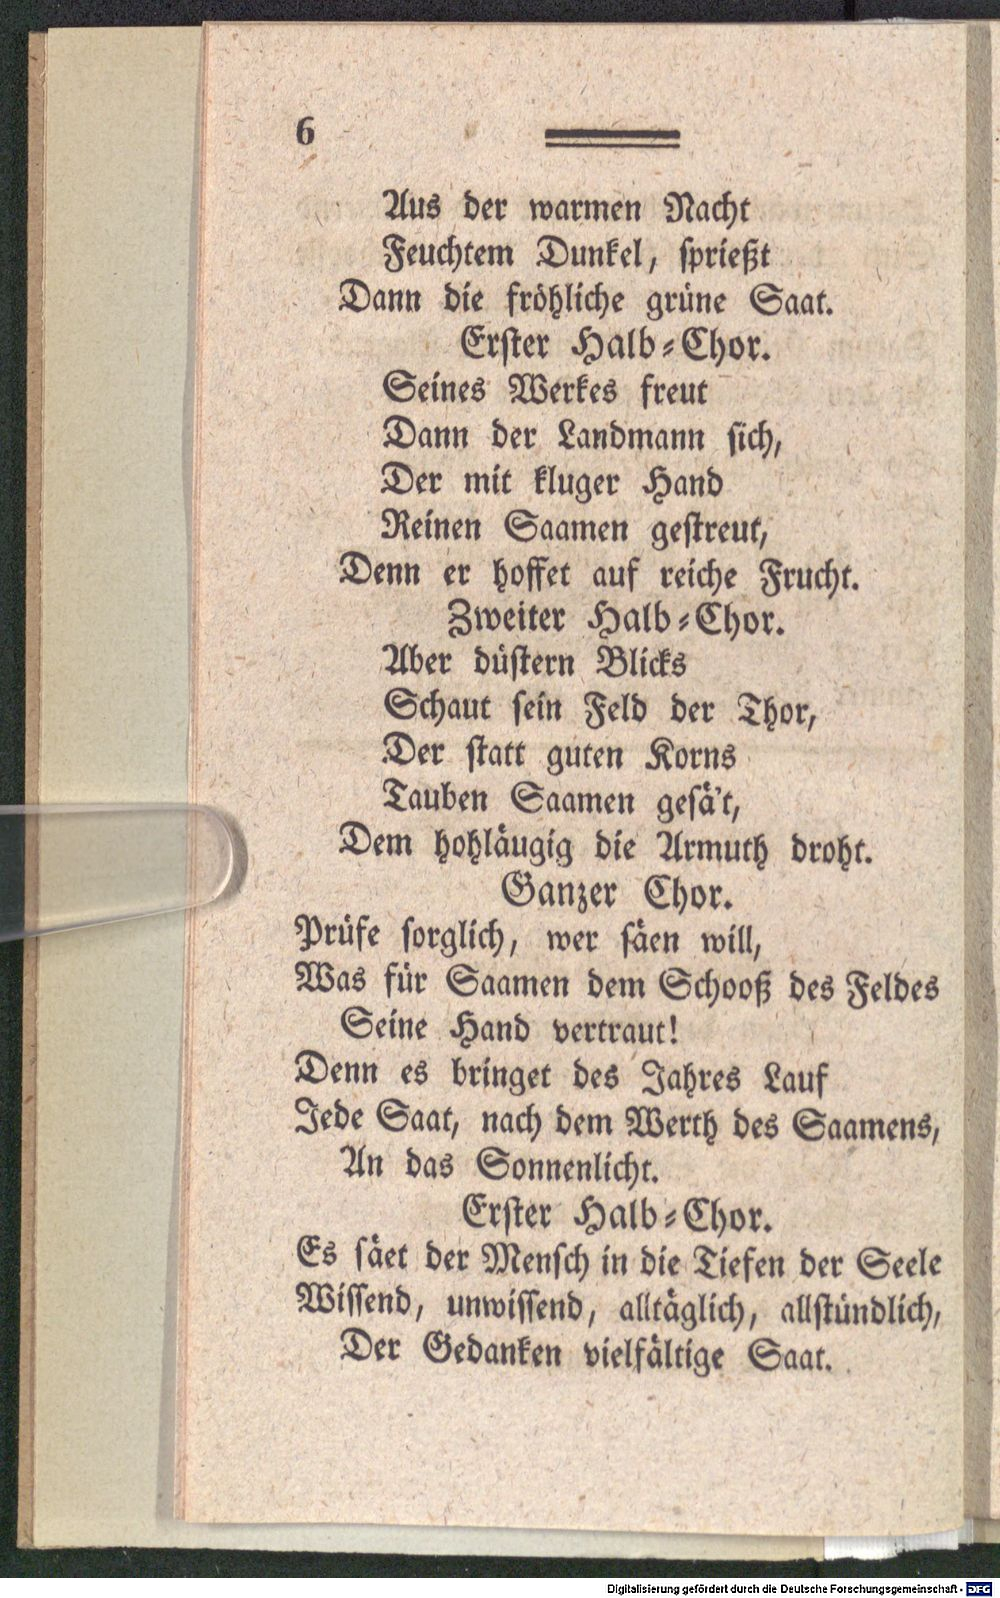 6
Aus der warmen Nacht
Feuchtem Dunkel, sprießt
Dann die fröhliche grüne Saat.
Erster Halb-Chor.
Seines Werkes freut
Dann der Landmann sich,
Der mit kluger Hand
Reinen Saamen gestreut,
Denn er hoffet auf reiche Frucht.
Zweiter Halb-Chor.
Aber düstern Blicks
Schaut sein Feld der Thor,
Der statt guten Korns
Tauben Saamen gesä't,
Dem hohläugig die Armuth droht.
Ganzer Chor.
Prüfe sorglich, wer säen will,
Was für Saamen dem Schooß des Feldes
Seine Hand vertraut!
Denn es bringet des Jahres Lauf
Jede Saat, nach dem Werth des Saamens,
An das Sonnenlicht.
Erster Halb-Chor.
Es säet der Mensch in die Tiefen der Seele
Wissend, unwissend, alltäglich, allstündlich,
Der Gedanken vielfältige Saat.
Digitalisierung gefördert durch die Deutsche Forschungsgemeinschaft - DFG